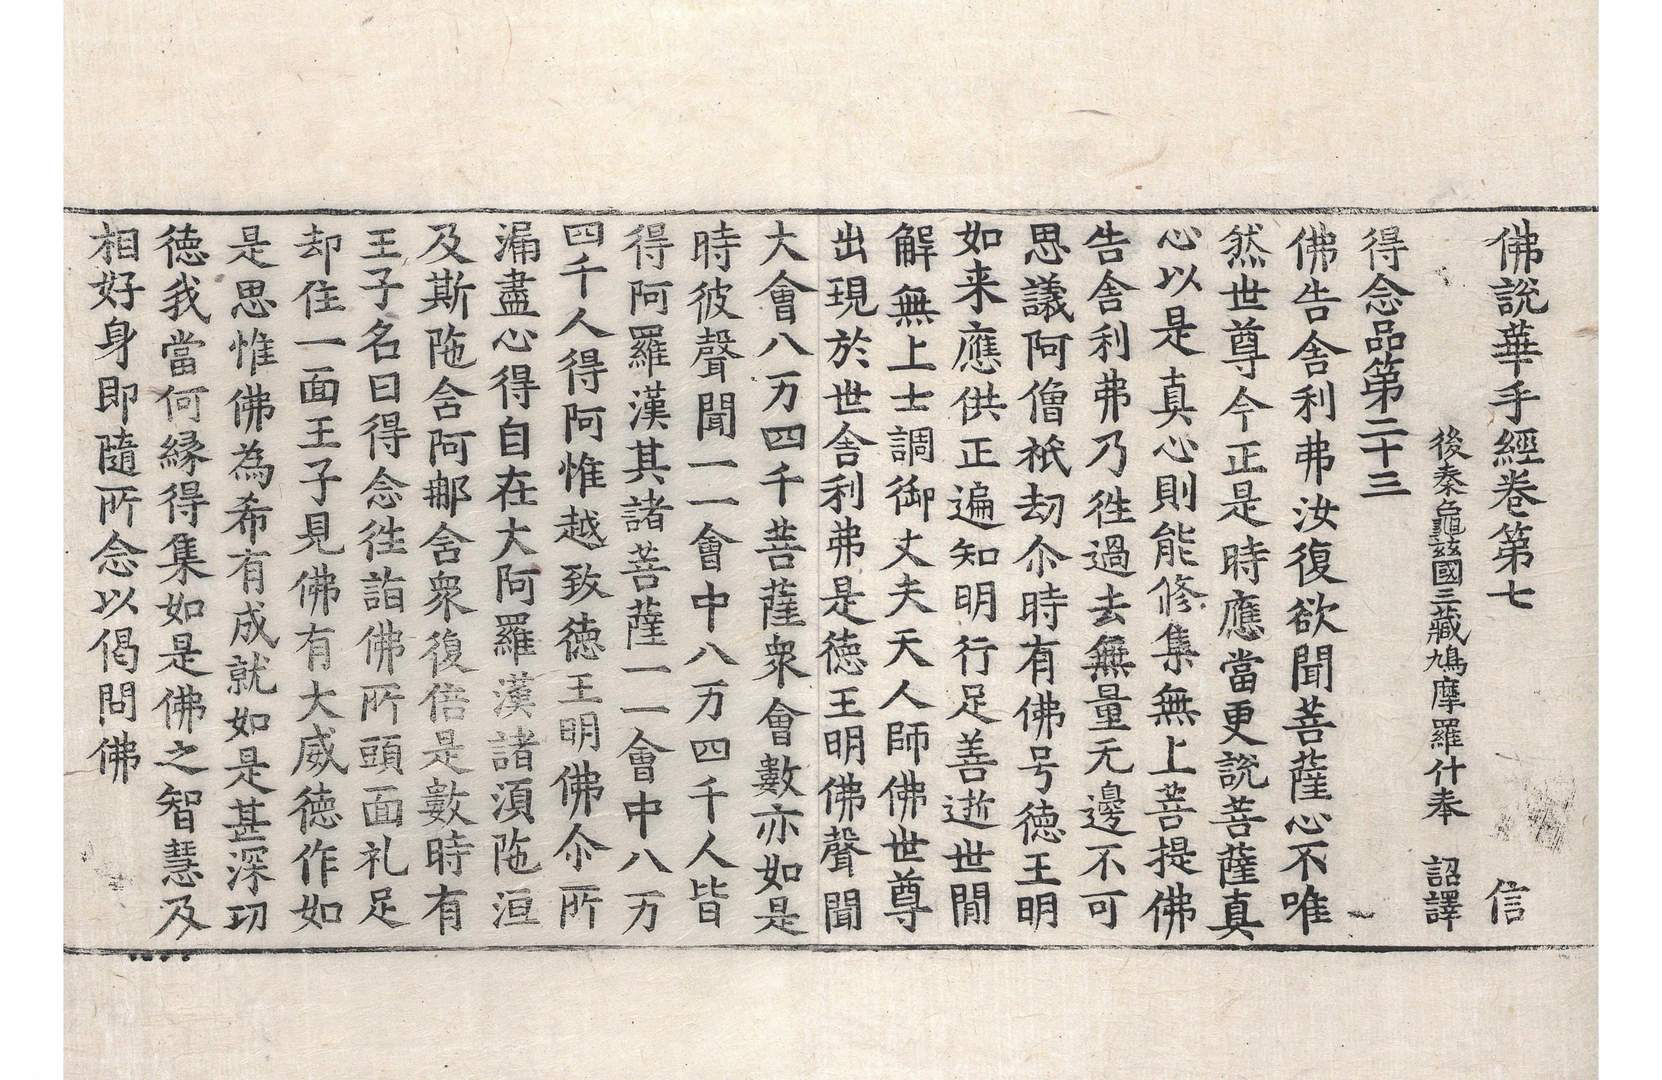 佛說華手經卷第七 信
後秦龜茲國三藏鳩摩羅什奉 詔譯
得念品第二十三
佛告舍利弗汝復欲聞菩薩心不唯
然世尊今正是時應當更說菩薩真
心以是真心則能修集無上菩提佛
告舍利弗乃徃過去無量无邊不可
思議阿僧祇劫尒時有佛号德王明
如来應供正遍知明行足善逝世間
解無上士調御丈夫天人師佛世尊
出現於世舍利弗是德王明佛聲聞
大會八万四千菩薩衆會數亦如是
時彼聲聞一一會中八万四千人皆
得阿羅漢其諸菩薩一一會中八万
四千人得阿惟越致德王明佛尒所
漏盡心得自在大阿羅漢諸湏陁洹
及斯陁含阿那含衆復倍是數時有
王子名曰得念徃詣佛所頭面礼足
却住一面王子見佛有大威德作如
是思惟佛為希有成就如是甚深功
德我當何緣得集如是佛之智慧及
相好身即隨所念以偈問佛